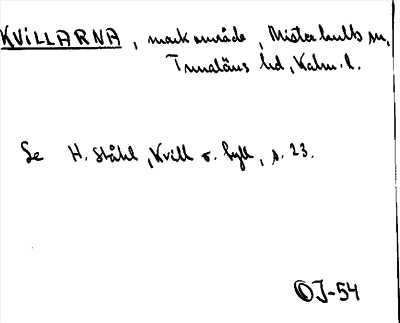 KVILLARNA, markområde, Misterhults sn,
Tunaläns hd, Kalm. l.
Se H. Ståhl, Kvill o. hyll, s. 23.
OJ-54